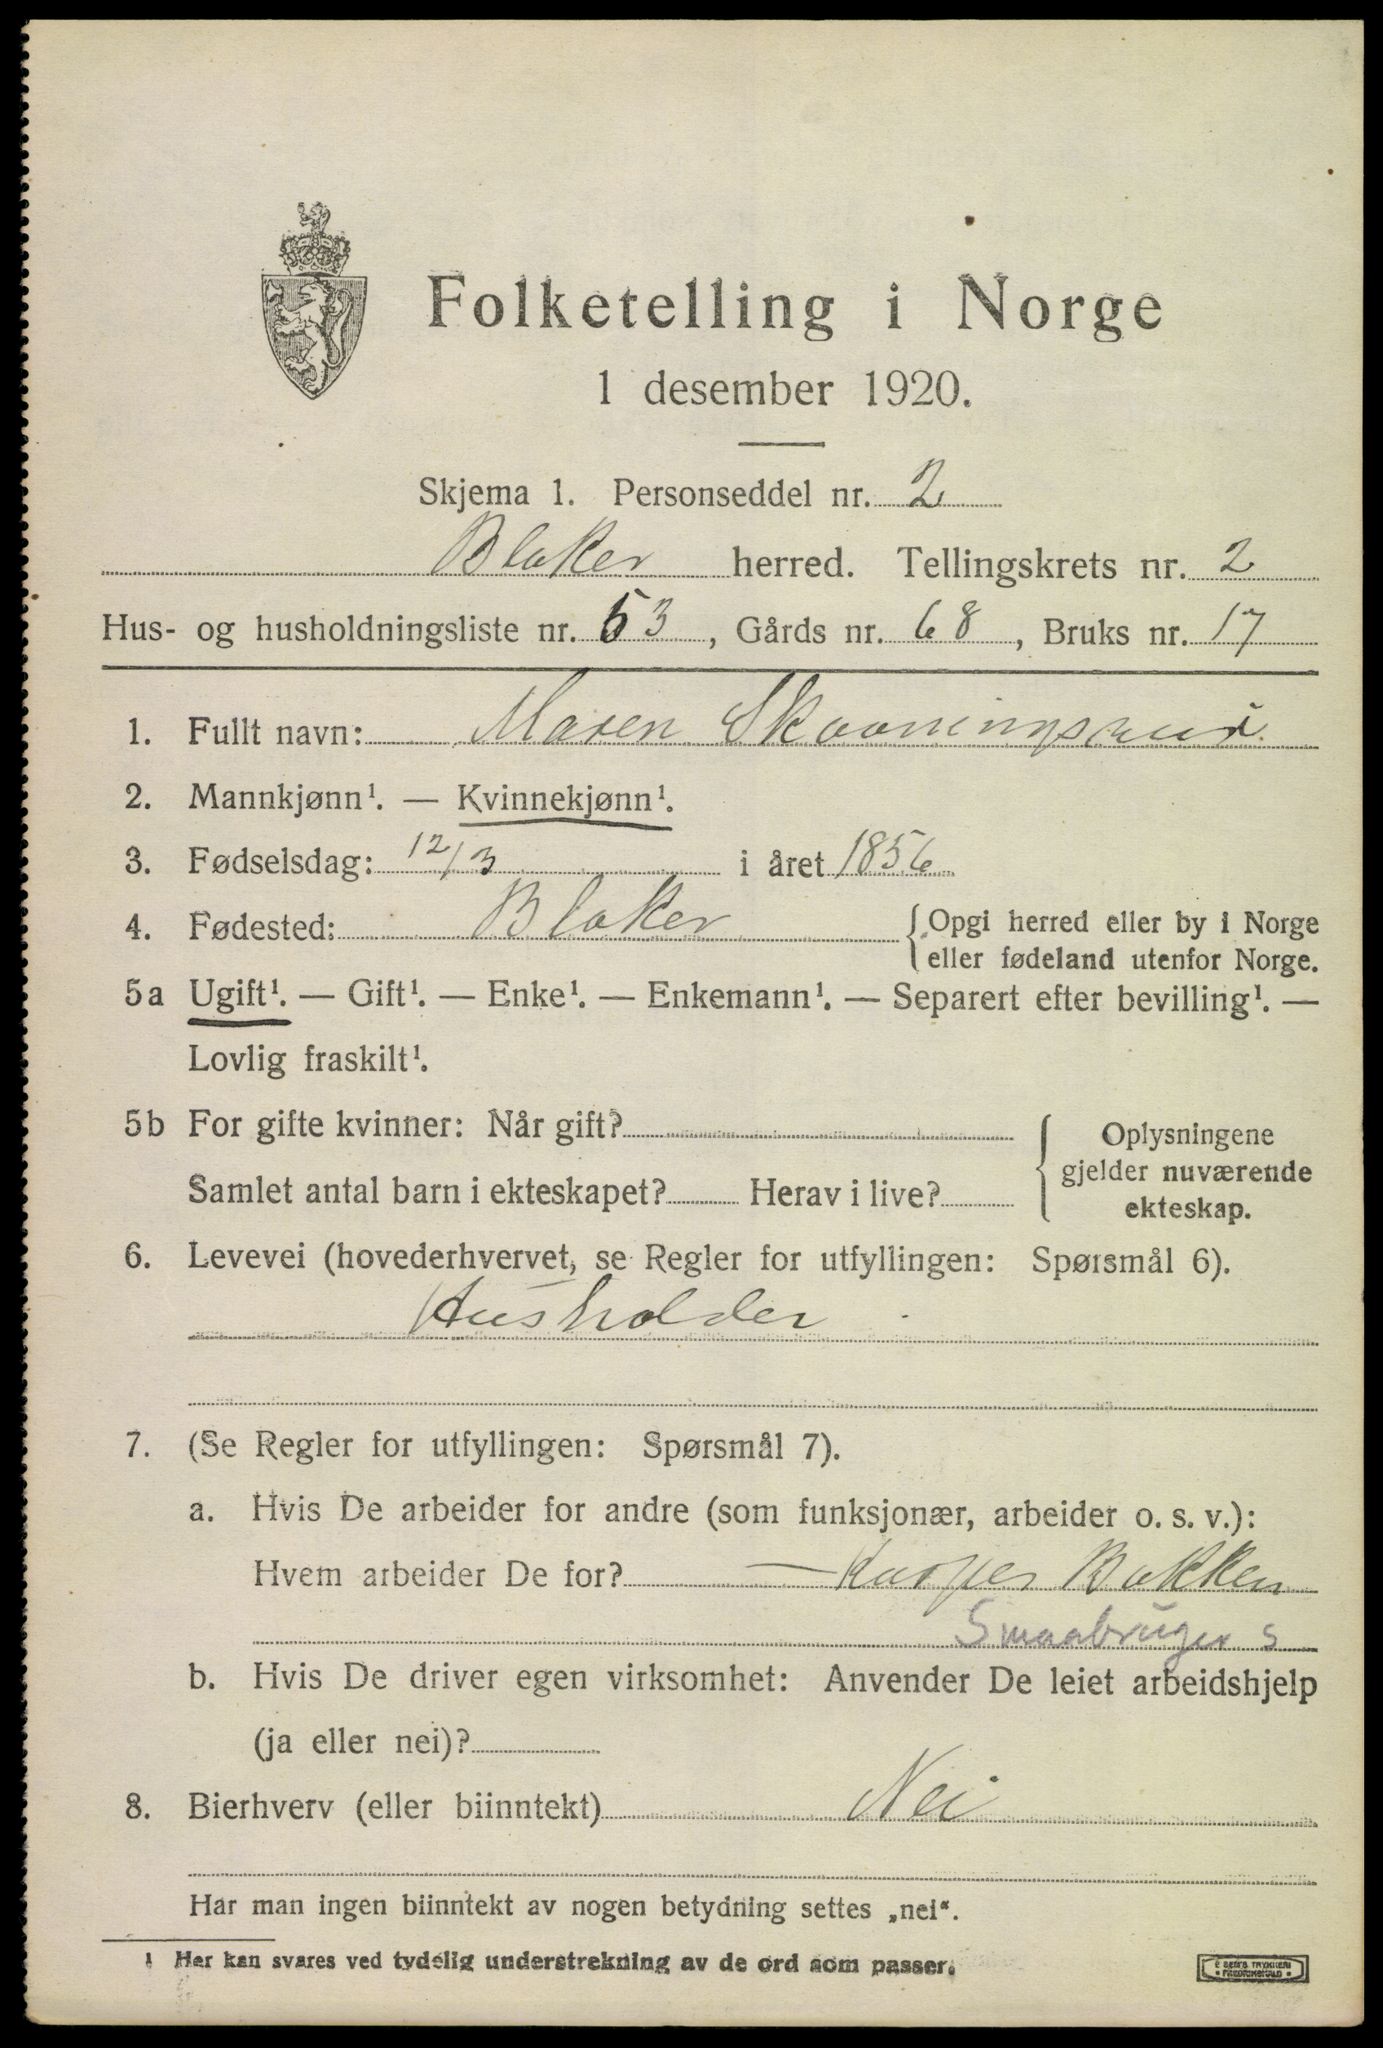 Folketelling i Norge
1 desember 1920.
Skjema 1. Personseddel nr. 2
Blaker herred. Tellingskrets nr. 2
Hus- og husholdningsliste nr. 53, Gårds nr. 68, Bruks nr. 17
1. Fullt navn: Maren
2. Mannkjønn¹. — Kvinnekjønn¹.
3. Fødselsdag: 12/3 i året 1856
4. Fødested: Blaker {Opgi herred eller by i Norge
eller fødeland utenfor Norge.
5a Ugift¹. — Gift¹. — Enke¹. — Enkemann¹. — Separert efter bevilling¹. —
Lovlig fraskilt¹.
5b For gifte kvinner: Når gift? Oplysningene
gjelder nuværende
Samlet antal barn i ekteskapet? Herav i live? ekteskap.
6. Levevei (hovederhvervet, se Regler for utfyllingen: Spørsmål 6).
Husholder
7. (Se Regler for utfyllingen: Spørsmål 7).
a. Hvis De arbeider for andre (som funksjonær, arbeider o. s. v.):
Hvem arbeider De for? — Kasper Bakken
Smaabruger s
b. Hvis De driver egen virksomhet: Anvender De leiet arbeidshjelp
(ja eller nei)?
8. Bierhverv (eller biinntekt) Nei
Har man ingen biinntekt av nogen betydning settes „nei“.
1 Her kan svares ved tydelig understrekning av de ord som passer.